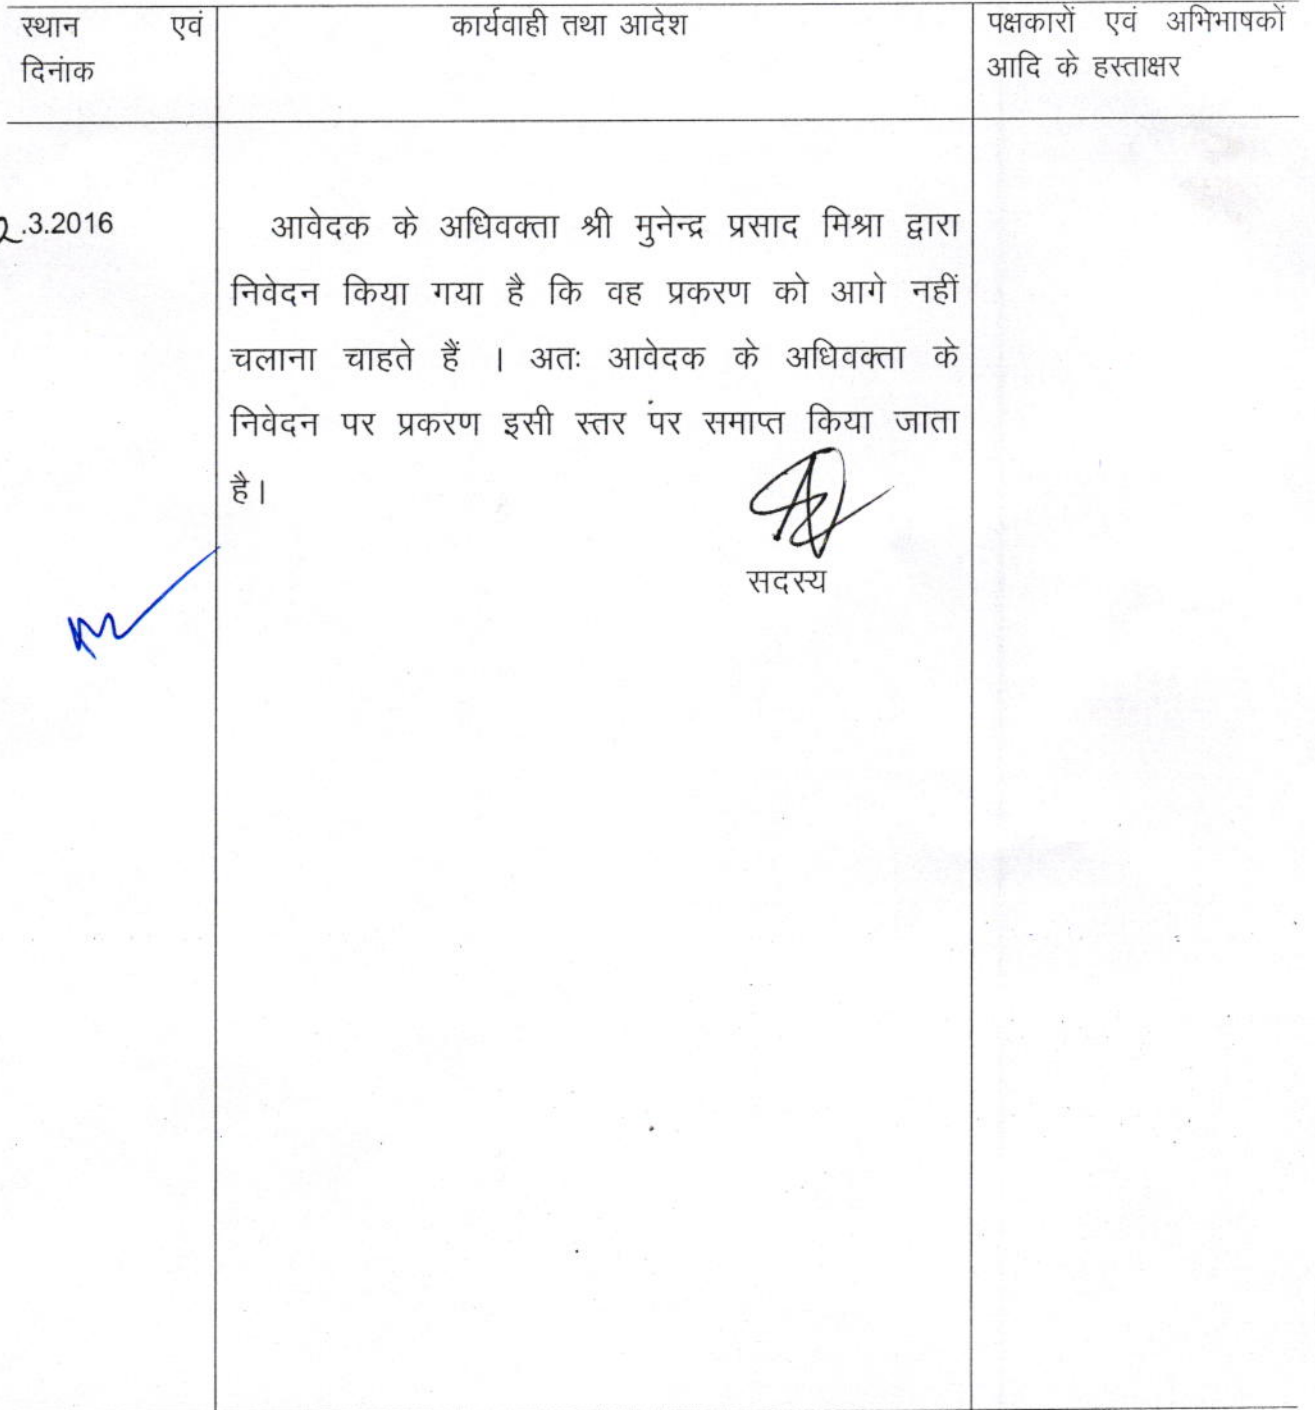 स्थान एवं
दिनांक
कार्यवाही तथा आदेश
पक्षकारों एवं अभिभाषकों
आदि के हस्ताक्षर
2.3.2016
आवेदक के अधिवक्ता श्री मुनेन्द्र प्रसाद मिश्रा द्वारा
निवेदन किया गया है कि वह प्रकरण को आगे नहीं
चलाना चाहते हैं । अतः आवेदक के अधिवक्ता के
निवेदन पर प्रकरण इसी स्तर पर समाप्त किया जाता
है।
सदस्य